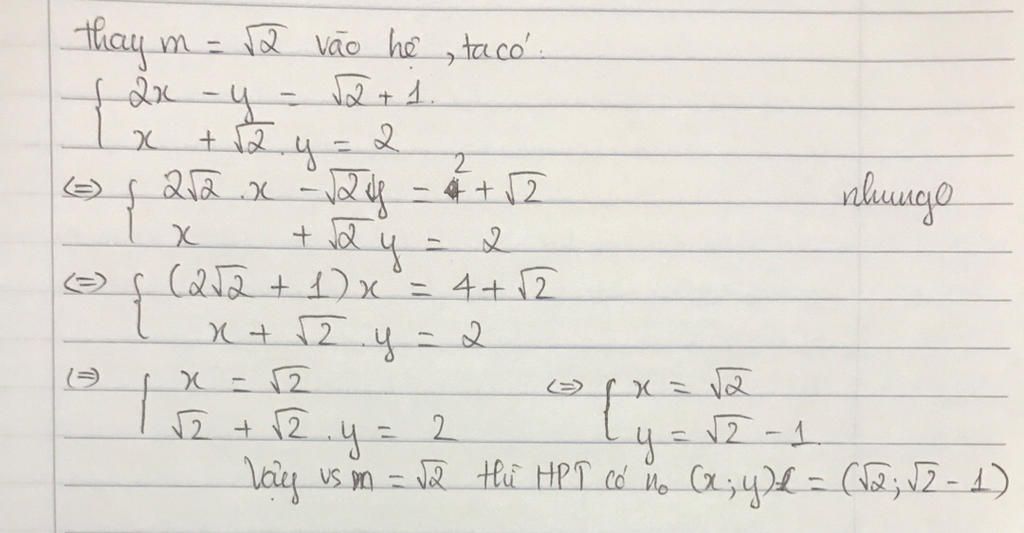 thay m = √2 vào hệ, ta có:
{ 2x - y = √2 + 1.
x + √2.y = 2
<=> { 2√2.x - √2y = 2 + √2
nhungo
x + √2y = 2
<=> { (2√2 + 1)x = 4 + √2
x + √2.y = 2
<=> { x = √2 <=> { x = √2
√2 + √2.y = 2 y = √2 - 1.
Vậy vs m = √2 thì HPT có no (x;y) = (√2; √2 - 1)